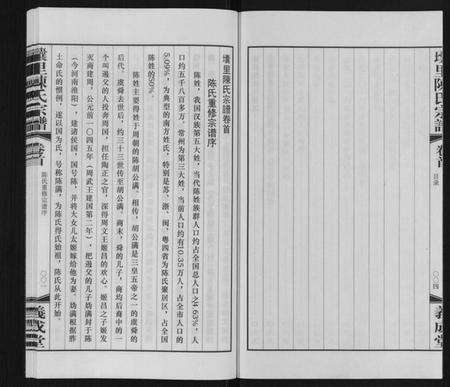 墳里陳氏宗譜
卷首
目录
〇〇四
義成堂
墳里陳氏宗譜卷首
陈氏重修宗谱序
陈姓，我国汉族第五大姓，当代陈姓族群人口约占全国总人口之4.63%，人
口约五千八百多万，常州为第三大姓，当前人口约有10.35万人，占全市人口的
5.09%，为典型的南方姓氏，特别是苏、浙、闽、粤四省为陈氏聚居区，占全国
陈姓的50%。
陈姓主要得姓于周朝的陈胡公满。相传，胡公满是三皇五帝之一的虞舜的
后代，虞舜去世后，约三十三世传至胡公满。商末，舜的儿子，商均后裔中的一
个叫遏父的人投奔周国，担任陶正之官，深得周文王姬昌的欢心，姬昌之子姬发
灭商建周，公元前一〇四五年（周武王建国第二年），把遏父的儿子妫满封于陈
（今河南淮阳），建诸侯国，国号陈，并将大女儿太姬嫁给他为妻，妫满根据胙
土命氏的惯例，遂以国为氏，号称陈满，为陈氏得氏始祖，陈氏从此开始。
墳里陳氏宗譜
卷首
陈氏重修宗谱序
〇〇一
義成堂